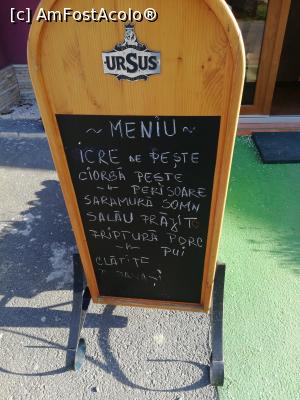 [c] AmFostAcolo®
URSUS
~ MENIU ~
ICRE DE PEȘTE
CIORBĂ PEȘTE
~"~ PERIȘOARE
SARAMURĂ SOMN
SALĂU PRĂJIT
FRIPTURĂ PORC
~"~ PUI
CLĂTITE